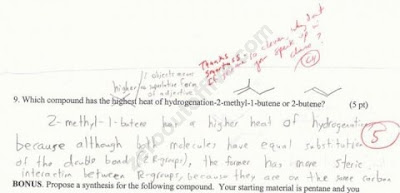 Thanks
smartass.
If you're so clever, why don't
you speak up in
class?
2 objects means
higher
superlative form
of adjective
9. Which compound has the highest heat of hydrogenation-2-methyl-1-butene or 2-butene? (5 pt)
2-methyl-1-butene has a higher heat of hydrogenation
5
because although both molecules have equal substitution
of the double bond (2 R-groups), the former has more steric
interaction between R-groups, because they are on the same carbon
BONUS. Propose a synthesis for the following compound. Your starting material is pentane and you